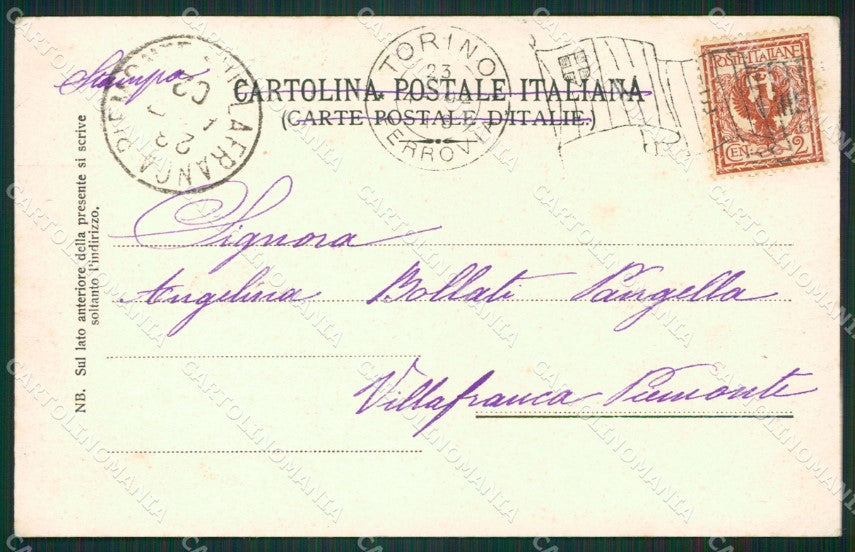 Stampa
CARTOLINA POSTALE ITALIANA
(CARTE POSTALE D'ITALIE.)
TORINO
23
FERROVIA
VILLAFRANCA PIEMONTE
23
POSTE ITALIANE
CEN. 2
Signora
Angelina Bollati Vargella
Villafranca Piemonte
NB. Sul lato anteriore della presente si scrive
soltanto l'indirizzo.
CARTOLINOMANIA